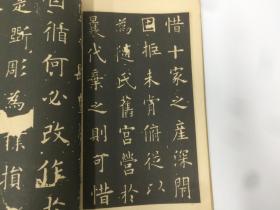 惜十家之産深閇
固拒未肯俯從以
為隨氏舊宮營於
曩代棄之則可惜
因循何必改作於
是斲彫為樸損